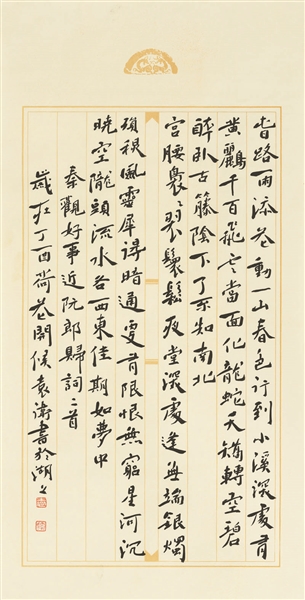 春路雨添花動一山春色行到小溪深處有
黃鸝千百飛雲當面化龍蛇夭矯轉空碧
醉臥古藤陰下了不知南北
宮腰裊裊翠鬟鬆夜堂深處逢無端銀燭
殞秋風靈犀得暗通更有限恨無窮星河沉
曉空隴頭流水各西東佳期如夢中
秦觀好事近阮郎歸詞二首
歲在丁酉荷花開候袁濤書於湖上